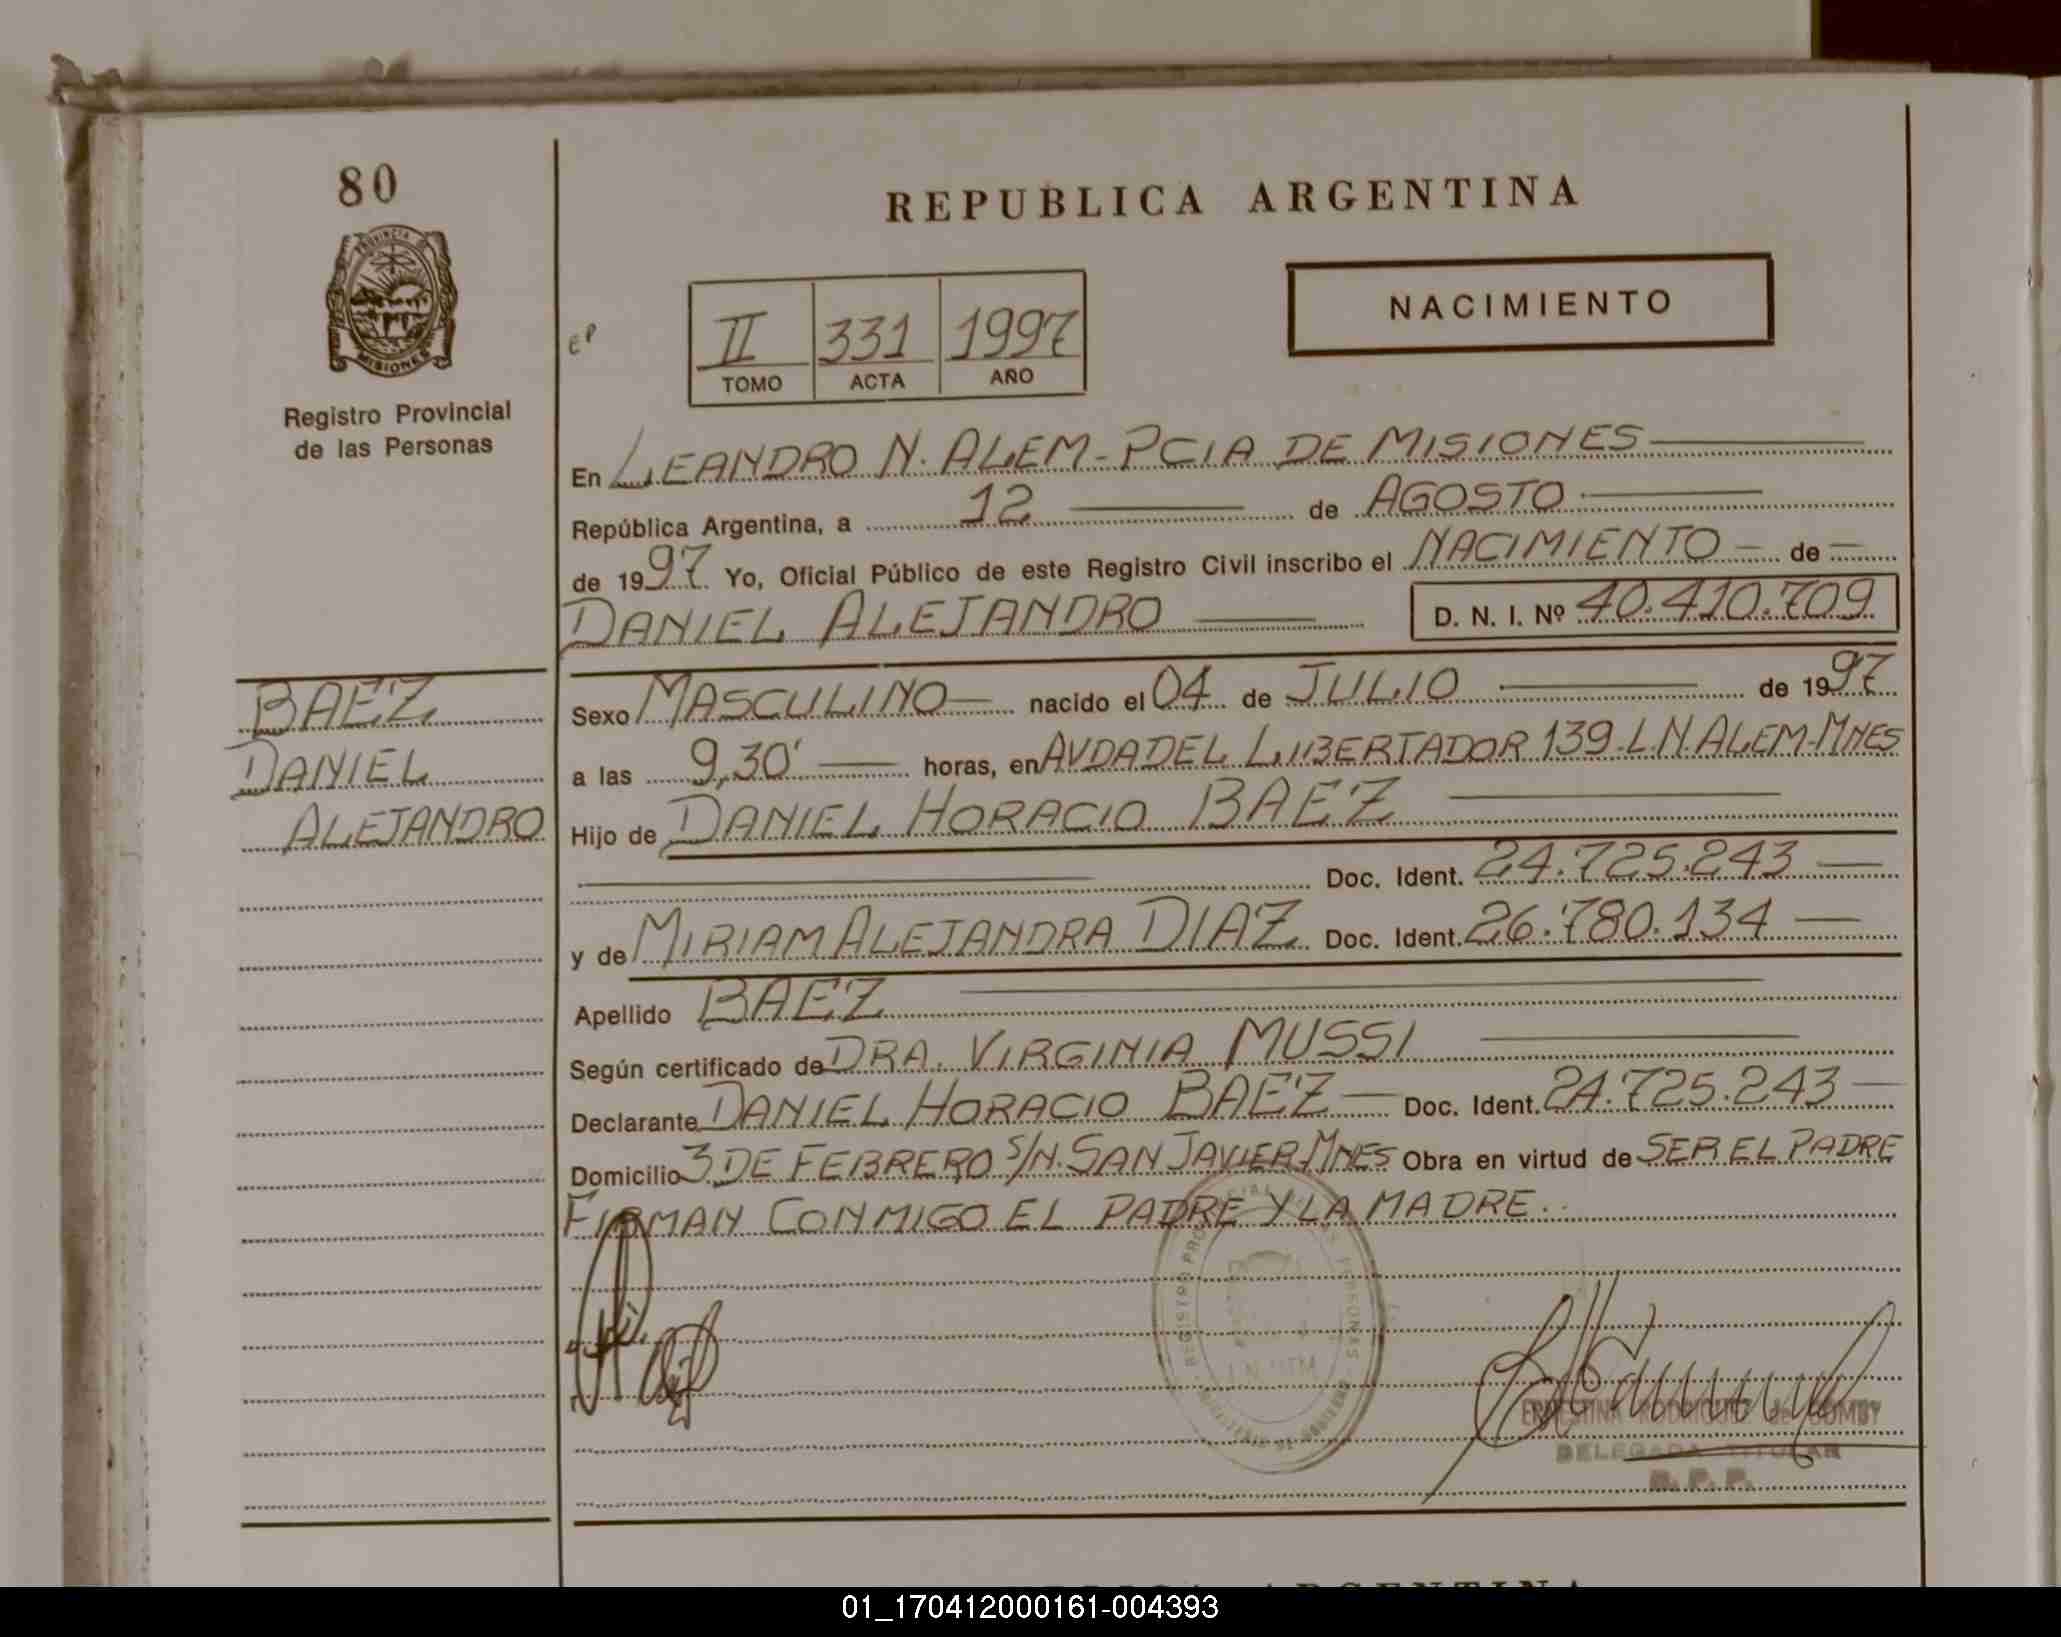 80
REPUBLICA ARGENTINA
PROVINCIA DE
MISIONES
NACIMIENTO
II 331 1997
TOMO ACTA AÑO
Registro Provincial
de las Personas
En LEANDRO N. ALEM-PCIA DE MISIONES
República Argentina, a 12 de AGOSTO
de 1997 Yo, Oficial Público de este Registro Civil inscribo el NACIMIENTO - de -
DANIEL ALEJANDRO D. N. I. Nº 40.410.709
BAEZ
DANIEL
ALEJANDRO
Sexo MASCULINO nacido el 04 de JULIO de 1997
a las 9,30' horas, en AVDA DEL LIBERTADOR 139-L.N.ALEM-MNES
Hijo de DANIEL HORACIO BAEZ
Doc. Ident. 24.725.243
y de MIRIAM ALEJANDRA DIAZ Doc. Ident. 26.780.134
Apellido BAEZ
Según certificado de DRA. VIRGINIA MUSSI
Declarante DANIEL HORACIO BAEZ Doc. Ident. 24.725.243
Domicilio 3 DE FEBRERO S/N. SAN JAVIER-MNES Obra en virtud de SER EL PADRE
FIRMAN CONMIGO EL PADRE Y LA MADRE.
ERNESTINA RODRIGUEZ de
DELEGADA TITULAR
R. P. P.
01_170412000161-004393